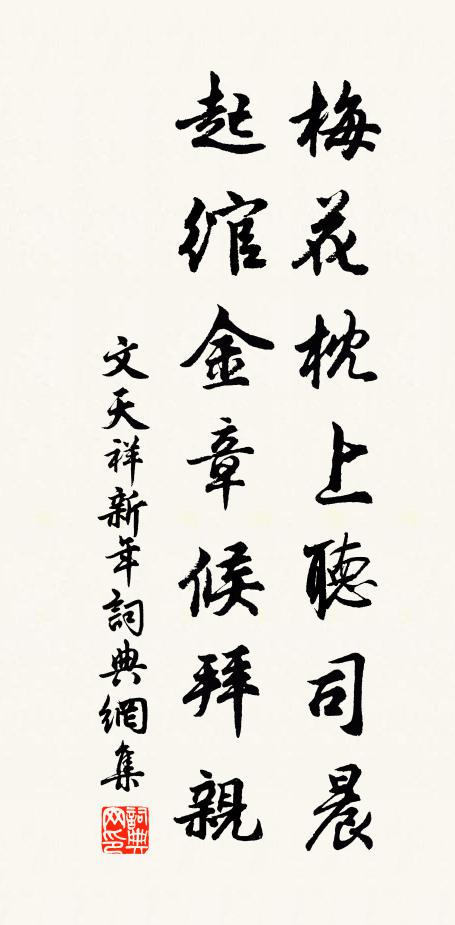 梅花枕上聽司晨
起綰金章候拜親
文天祥新年詞典網集
詞典网印